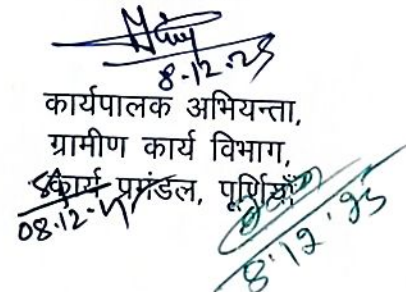 8.12.25
कार्यपालक अभियन्ता,
ग्रामीण कार्य विभाग,
कार्य प्रमंडल, पूर्णियाँ
08.12.25
8.12.25